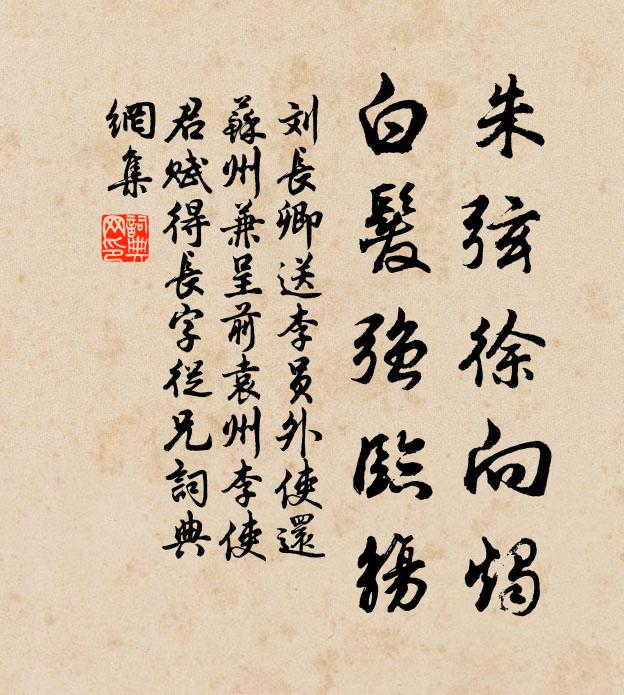 朱弦徐向燭
白髮強臨觴
刘長卿送李員外使還
蘇州兼呈前袁州李使
君賦得長字從兄詞典
網集
詞典网印